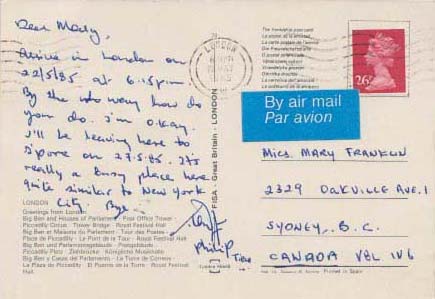 Dear Mary,
Arrive in London on
22/5/85 at 6.15pm
By the way how do
you do. I'm o.kay.
I'll be leaving here to
S'pore on 27.5.85. It's
really a busy place here
quite similar to New York
City. Bye..
Philip
LONDON
Greetings from London
Big Ben and Houses of Parliament · Post Office Tower
Piccadilly Circus · Tower Bridge · Royal Festival Hall
Big Ben et Maisons du Parlement · Tour des Postes
Place de Piccadilly · Le Pont de la Tour · Royal Festival Hall
Big Ben und Parlamentsgebäude · Postgebäude
Piccadilly Platz · Zeinbrucke · Königliche Musikhalle
Big Ben y Casas del Parlamento · La Torre de Correos
La Plaza de Piccadilly · El Puente de la Torre · Royal Festival
Hall.
FISA - Great Britain - LONDON
LONDON
26P
By air mail
Par avion
Miss. MARY FRANKLIN
2329 OAKVILLE AVE.1
SYDNEY, B.C.
CANADA V8L 1V6
Printed in Spain